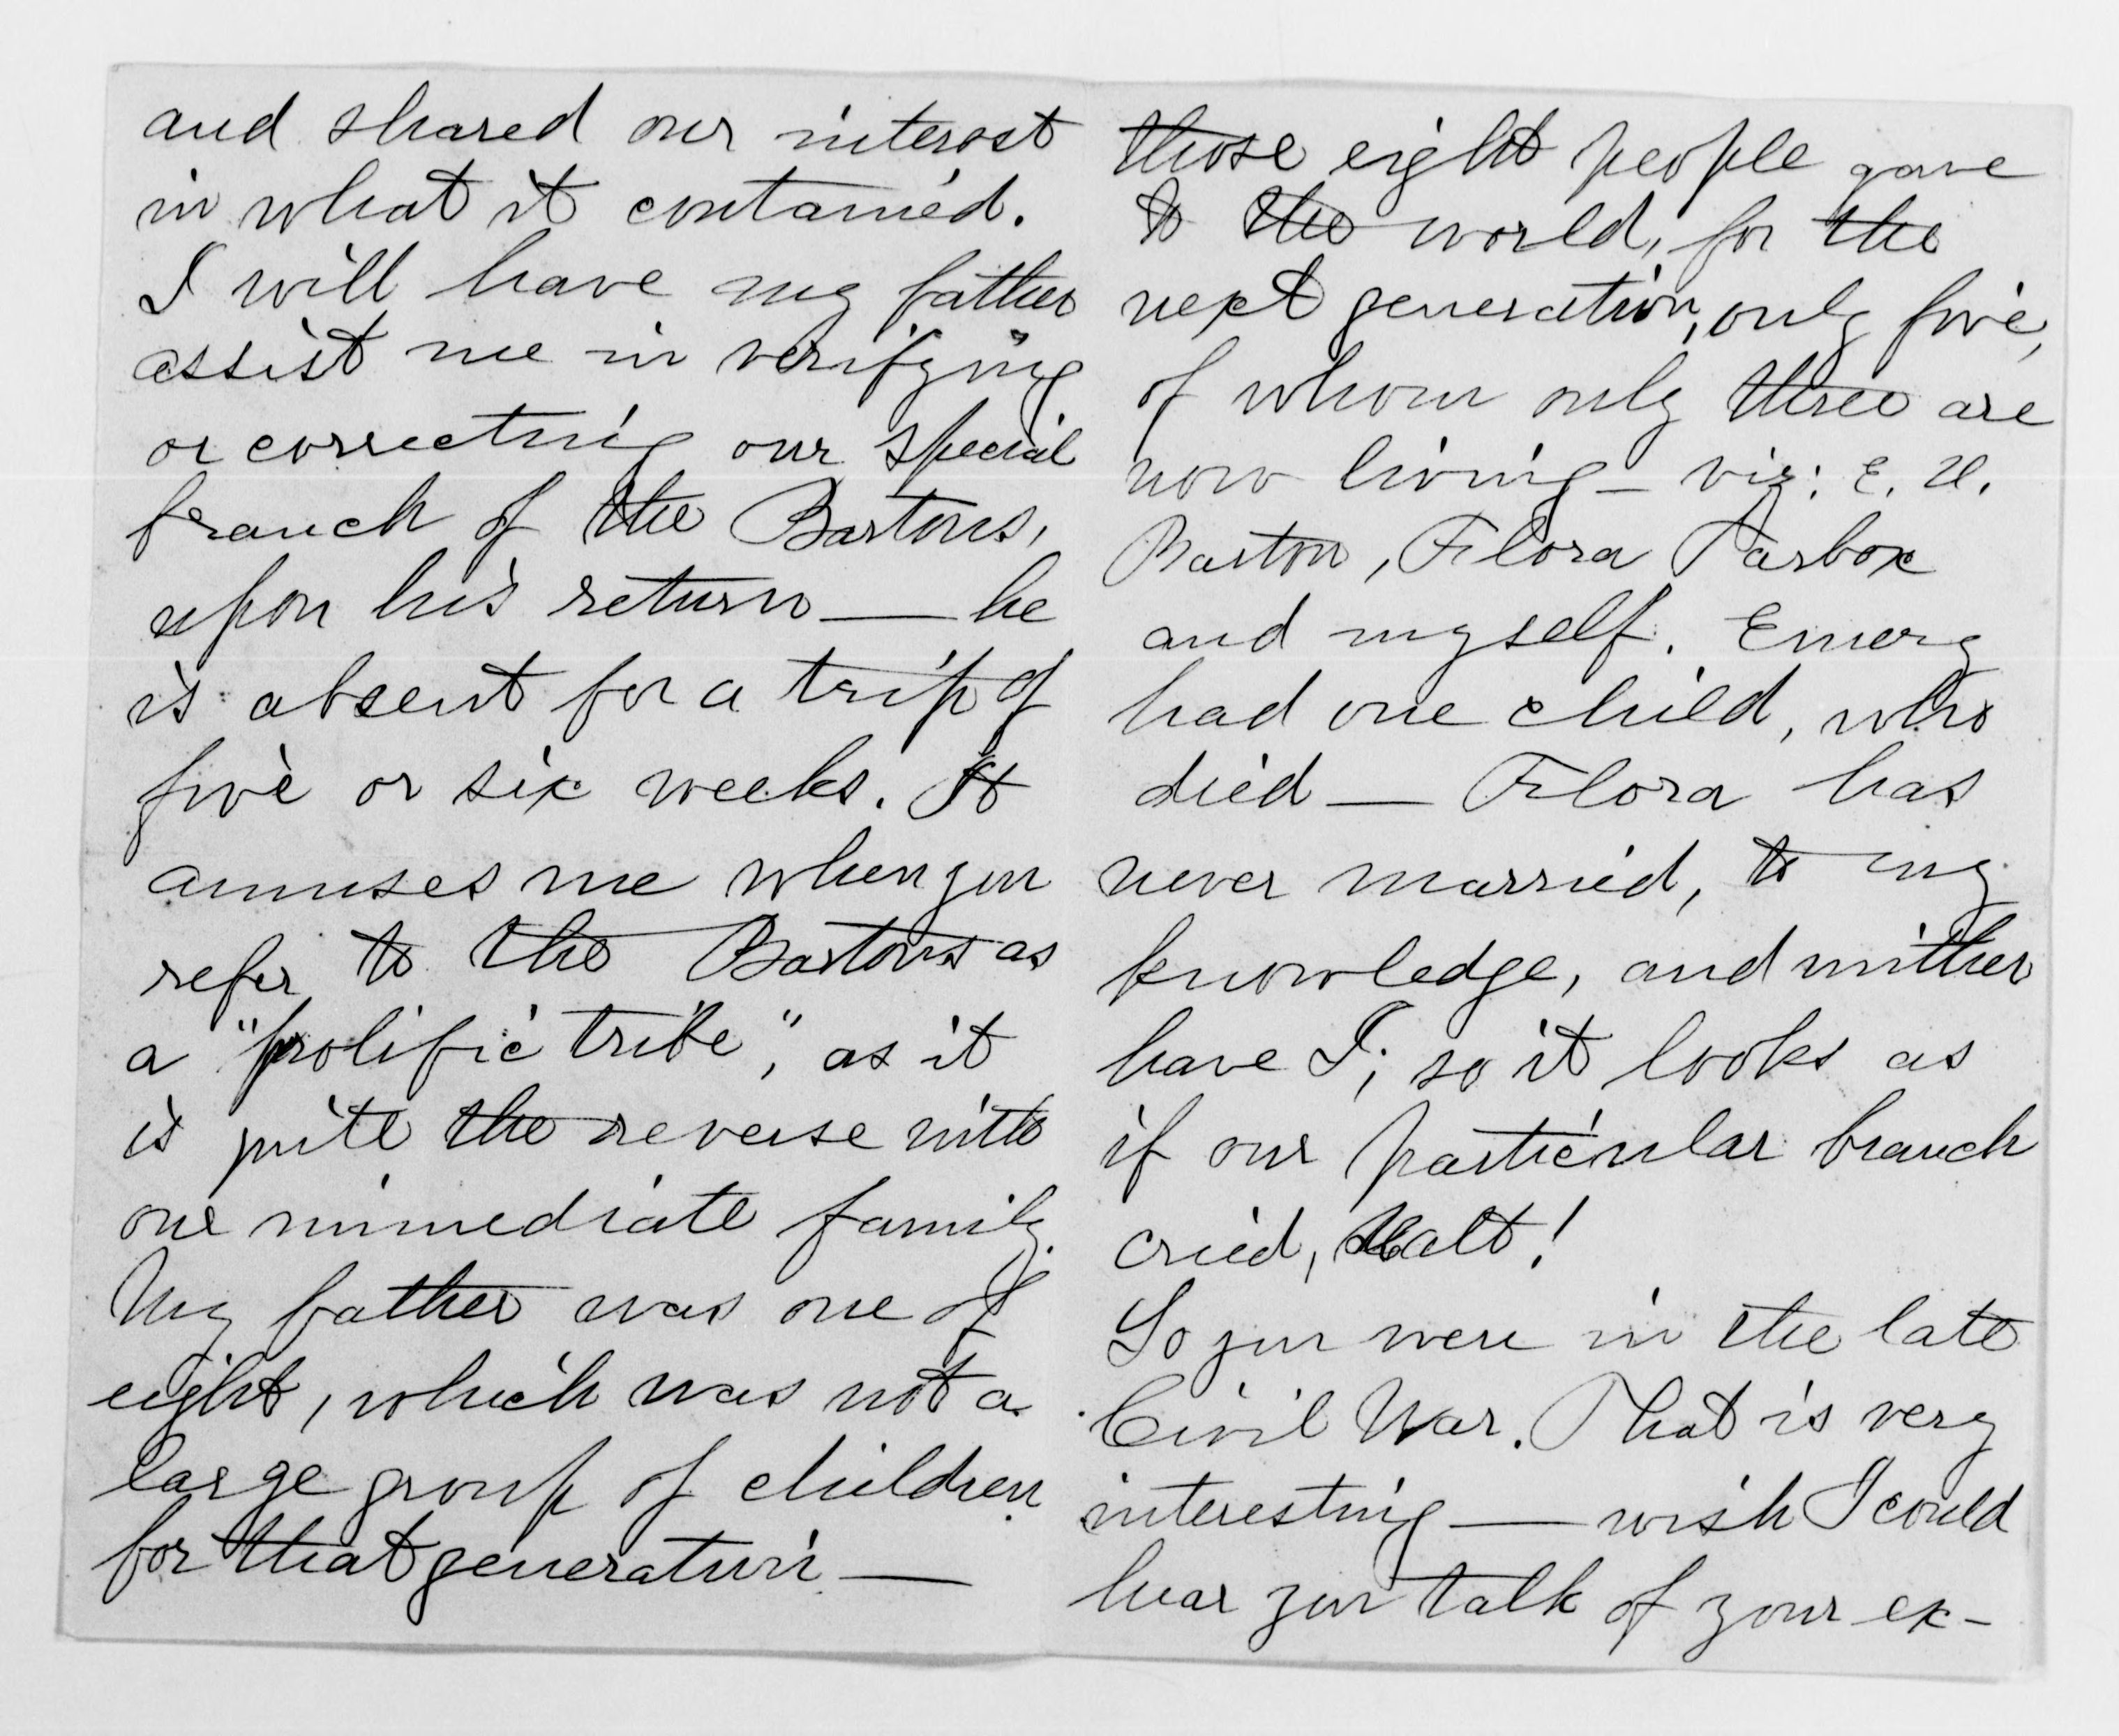 and shared our interest
in what it contained.
I will have my father
assist me in verifying
or correcting our special
branch of the Bartons,
upon his return — he
is absent for a trip of
five or six weeks. It
amuses me when you
refer to the Bartons as
a "prolific tribe", as it
is quite the reverse with
our immediate family.
My father was one of
eight, which was not a
large group of children
for that generation —
those eight people gave
to the world, for the
next generation, only five,
of whom only three are
now living — viz: E. H.
Barton, Flora Tarbox
and myself. Emery
had one child, who
died — Flora has
never married, to my
knowledge, and neither
have I; so it looks as
if our particular branch
cried, Halt!
So you were in the late
Civil War. That is very
interesting — wish I could
hear you talk of your ex-